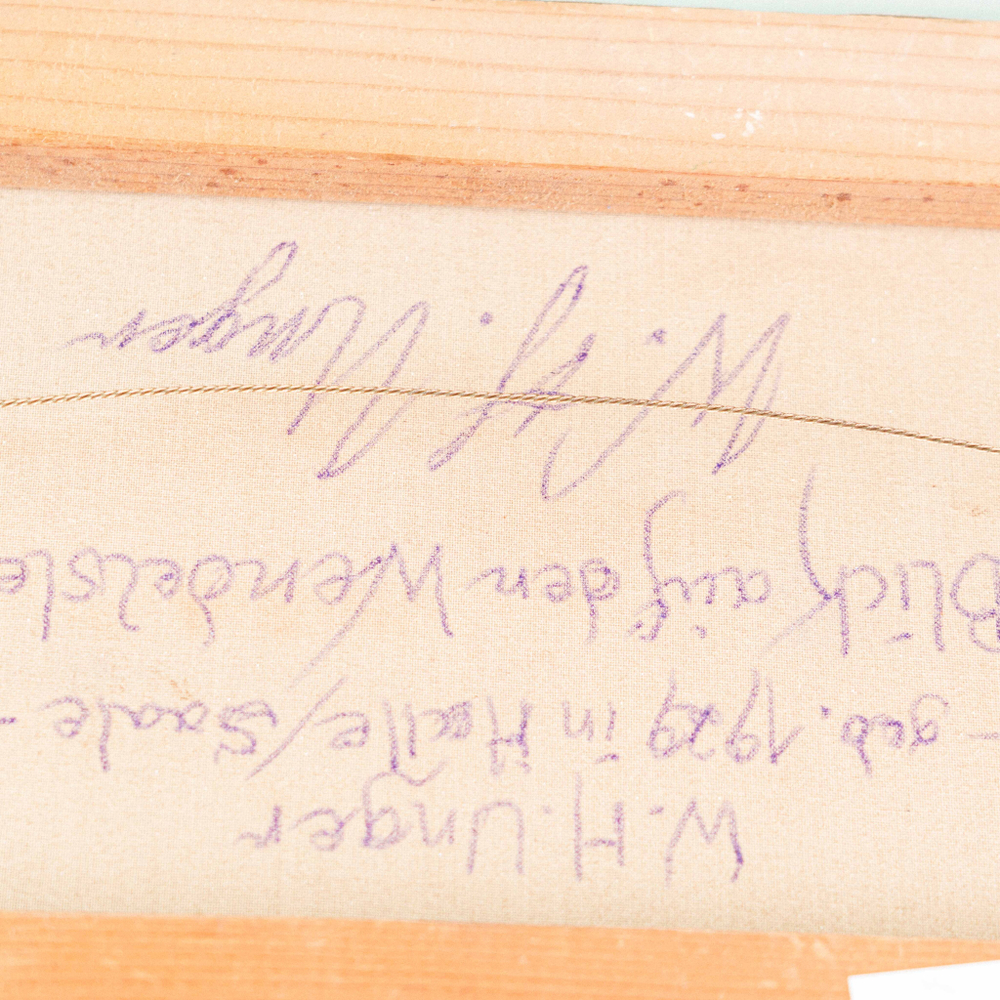 W. H. Unger
- geb. 1929 in Halle/Saale -
Blick auf den Wendelste
W. H. Unger